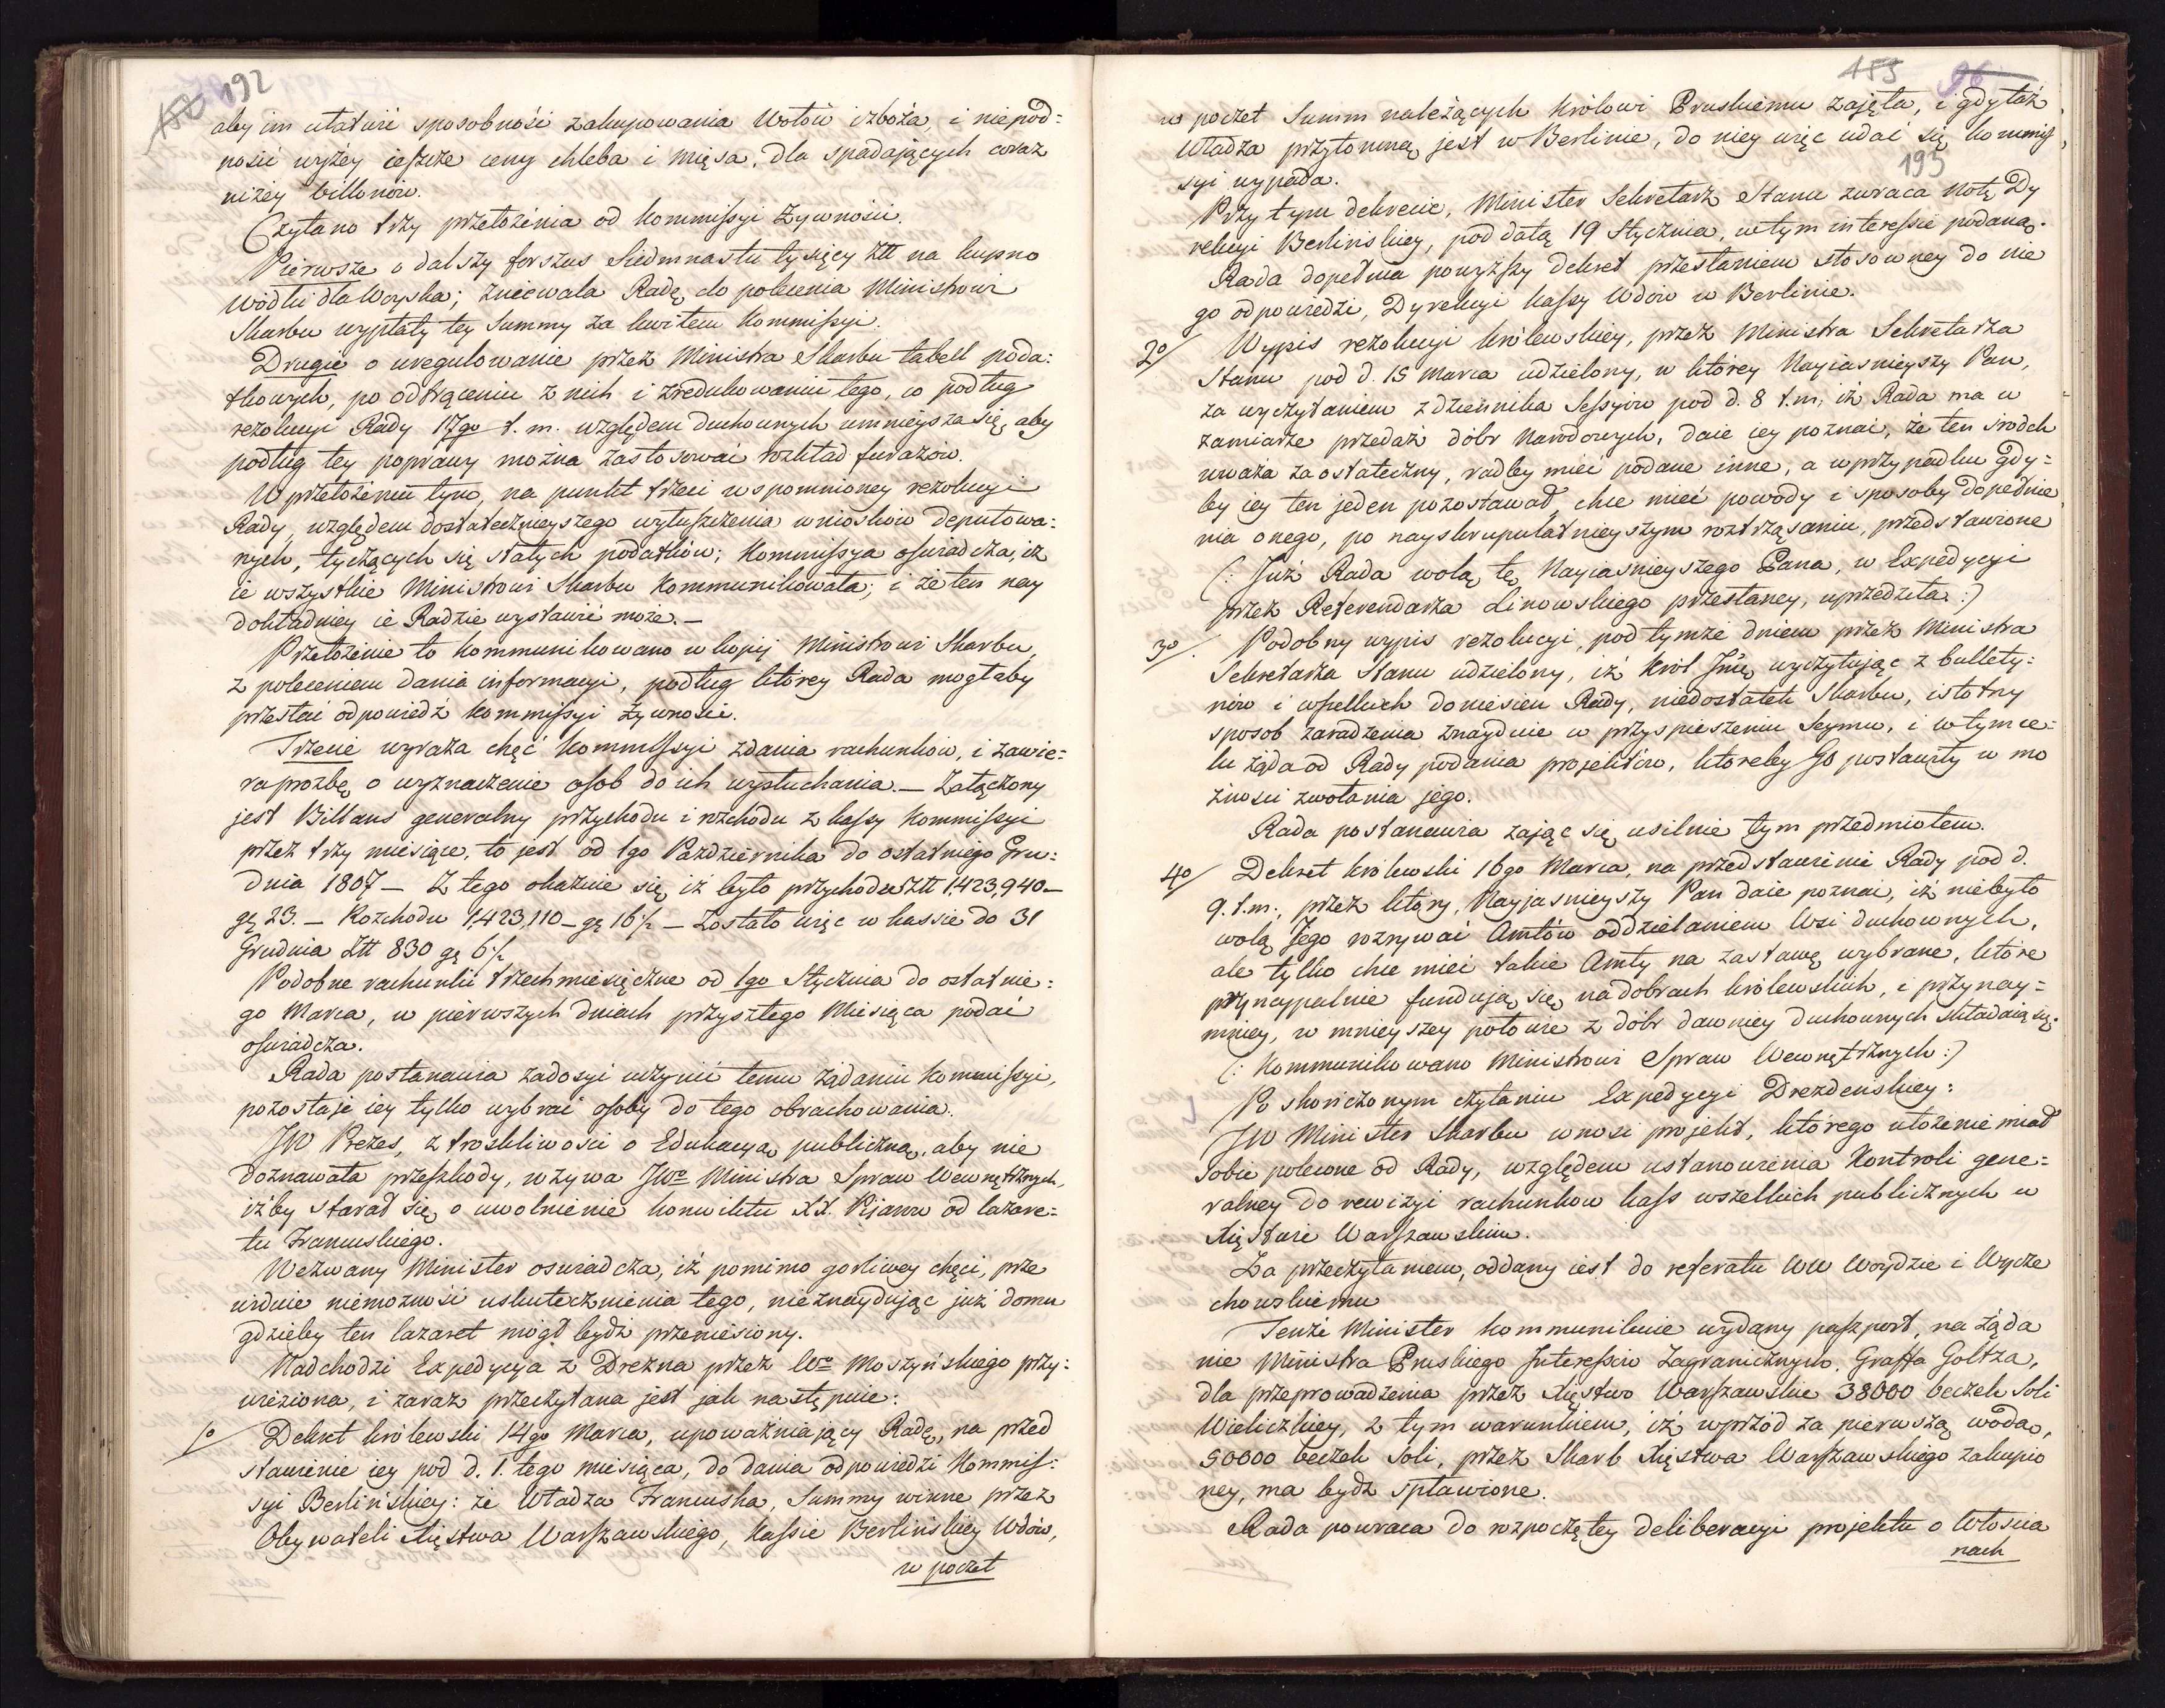 192
aby im ułatwić sposobność zakupowania Wołów i zboża, i nie pod=
nosić wyżey ieszcze ceny chleba i mięsa, dla spadających coraz
niżey billonów.
Czytano trzy przełożenia od Kommissyi Żywności.
Pierwsze o dalszy forszus siedmnastu tysięcy Ztt na kupno
wódki dla Woyska; zniewala Radę do polecenia Ministrowi
Skarbu wypłaty tey Summy za kwitem Kommissyi.
Drugie o uregulowanie przez Ministra Skarbu tabell poda:
tkowych, po odtrąceniu z nich i zredukowaniu tego, co podług
rezolucyi Rady 17go t. m. względem duchownych umnieysza się, aby
podług tey poprawy można zastosować rozkład furażów.
W przełożeniu tym, na punkt trzeci wspomnioney rezolucyi
Rady, względem dostatecznieyszego wytłuszczenia wniosków Deputowa:
nych, tyczących się stałych podatków; Kommissya oświadcza, iż
ie wszystkie Ministrowi Skarbu Kommunikowała; i że ten nay
dokładniey ie Radzie wystawić może.—
Przełożenie to kommunikowano w kopij Ministrowi Skarbu,
z poleceniem dania informacyi, podług którey Rada mogłaby
przesłać odpowiedź Kommissyi Żywności.
Trzecie wyraża chęć Kommissyi zdania rachunków, i zawie=
ra prozbę o wyznaczenie osob do ich wysłuchania.— Załączony
jest Billans generalny przychodu i rozchodu z kassy Kommissyi
przez trzy miesiące, to jest od 1go Pazdziernika do ostatniego Gru:
dnia 1807 — Z tego okazuie się, iż było przychodu Ztt 1,423,940—
gę 23. — Rozchodu 1,423,110 — gę 16½ — Zostało więc w kassie do 31
Grudnia Ztt 830 gę 6½
Podobne rachunki trzechmiesięczne od 1go Stycznia do ostatnie:
go Marca, w pierwszych dniach przyszłego Miesiąca podać
oświadcza.
Rada postanawia zadosyć uczynić temu żądaniu Kommissyi,
pozostaje iey tylko wybrać osoby do tego obrachowania.
JW Prezes, z troskliwości o Edukacyą publiczną, aby nie
doznawała przeszkody, wzywa JWo Ministra Spraw Wewnętrznych,
iżby starał się o uwolnienie konwiktu XX. Pijarów od lazare=
tu Francuskiego.
Wezwany Minister oswiadcza, iż pomimo gorliwey chęci, prze
widuie niemożność uskutecznienia tego, nieznaydując już domu
gdzieby ten lazaret mógł bydź przeniesiony.
Nadchodzi Expedycya z Drezna przez Wo Moszyńskiego przy:
wieziona, i zaraz przeczytana jest jak następuie:
1o/ Dekret królewski 14go Marca, upoważniający Radę, na przed
stawienie iey pod d. 1. tego miesiąca, do dania odpowiedzi Kommis=
syi Berlińskiey: że Władza Francuska, Summy winne przez
Obywateli Xięstwa Warszawskiego, Kassie Berlińskiey Wdów,
w poczet
153 96
w poczet Summ należących Królowi Pruskiemu zajęła, i gdy taż
Władza przytomną jest w Berlinie, do niey więc udać się Kommis
193
syi wypada.
Przy tym dekrecie, Minister Sekretarz Stanu zwraca Notę Dy
rekcyi Berlińskiey, pod datą 19 Stycznia, w tym interessie podaną.
Rada dopełnia powyższy dekret przesłaniem stosowney do nie
go odpowiedzi, Dyrekcyi kassy Wdów w Berlinie.
2o/ Wypis rezolucyi królewskiey, przez Ministra Sekretarza
Stanu pod d. 15 Marca udzielony, w którey Nayiasnieyszy Pan,
za wyczytaniem z dziennika Sessyiow pod d. 8 t.m, iż Rada ma w
zamiarze przedaż dóbr Narodowych, daie iey poznać, że ten srodek
uważa za ostateczny, radby mieć podane inne, a w przypadku gdy=
by iey ten jeden pozostawał, chce mieć powody i sposoby dopełnie
nia onego, po nayskrupulatnieyszym roztrząsaniu, przedstawione
(: Już Rada wolą tę Nayiasnieyszego Pana, w Expedycyi
przez Referendarza Linowskiego przesłaney, uprzedziła:)
3o/ Podobny wypis rezolucyi, pod tymże dniem przez Ministra
Sekretarza Stanu udzielony, iż Król Jmć wyczytując z bullety:
nów i wszelkich doniesień Rady, niedostatek Skarbu, istotny
sposob zaradzenia znayduie w przyspieszeniu Seymu, i w tym ce=
lu żąda od Rady podania projektów, któreby Go postawiły w mo
żności zwołania jego.
Rada postanawia zająć się usilnie tym przedmiotem.
4o/ Dekret krolewski 16go Marca, na przedstawienie Rady pod d.
9. t.m., przez który, Nayjasnieyszy Pan daie poznać, iż niebyło
wolą Jego rozrywać Amtów oddzielaniem Wsi duchownych,
ale tylko chce mieć takie Amty na zastawę wybrane, które
pryncypalnie fundują się na dobrach królewskich, i przynay=
mniey, w mnieyszey połowie z dóbr dawniey duchownych składaią się.
(: Kommunikowano Ministrowi Spraw Wewnętrznych:)
Po skończonym czytaniu Expedycyi Drezdeńskiey:
JW Minister Skarbu wnosi projekt, którego ułożenie miał
sobie polecone od Rady, względem ustanowienia Kontroli gene=
ralney do rewizyi rachunkow kass wszelkich publicznych w
Xięstwie Warszawskim.
Za przeczytaniem, oddany iest do referatu WW Woydzie i Wycze
chowskiemu
Tenże Minister kommunikuie wydany paszport, na żąda
nie Ministra Pruskiego Interessów Zagranicznych, Graffa Goltza,
dla przeprowadzenia przez Xięstwo Warszawskie 38000 beczek Soli
Wieliczkiey, z tym warunkiem, iż wprzód za pierwszą wodą,
50000 beczek Soli, przez Skarb Xięstwa Warszawskiego zakupio
ney, ma bydź spławione.
Rada powraca do rozpoczętey deliberacyi projektu o Włościa
nach